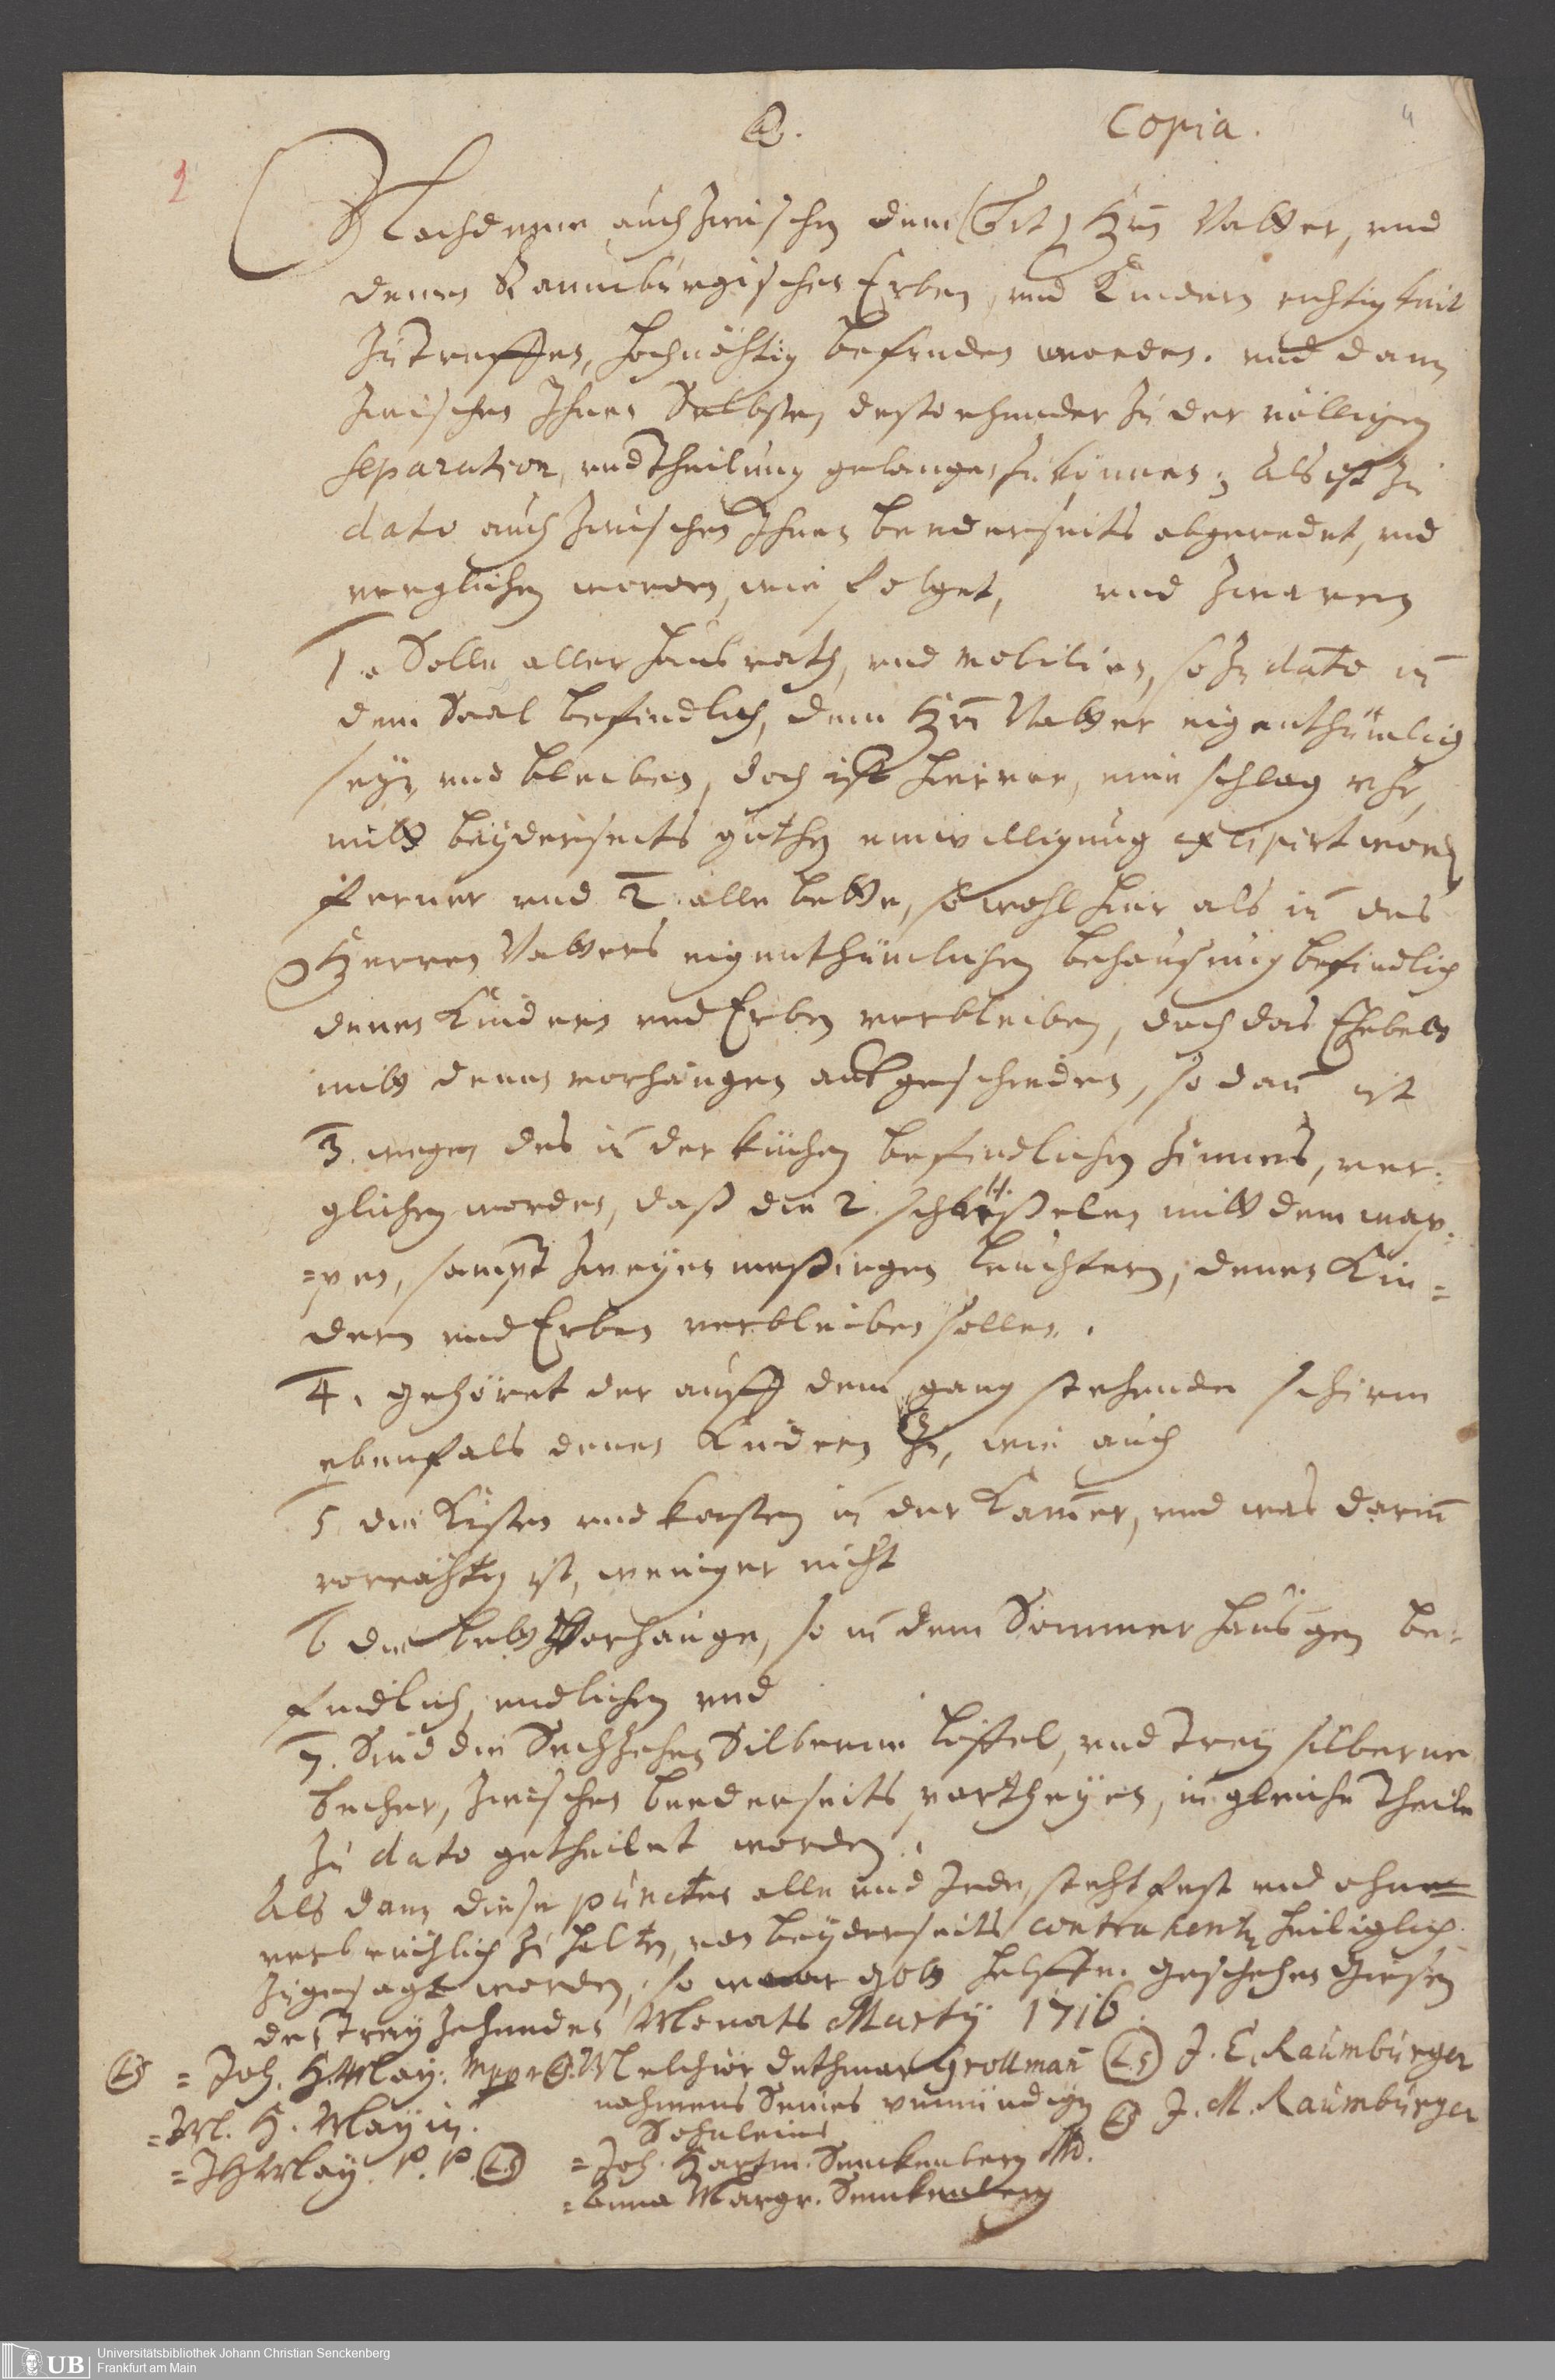 a.
Copia.
4
2
Nachdeme auch zwischen dem (Tit) Hrn Vatter, und
denen Raumburgischen Erben, und Kindern richtigkeit
zu treffen, hochnöhtig befunden worden. und dann
zwischen Ihnen Selbsten desto ehender zu der völligen
separation, und Theilung gelangen zu können; Als ist zu
dato auch zwischen Ihnen beederseits abgeredet, und
verglichen worden, wie folget, und zwaren
1. Solle aller haus rath, und mobilien, so zu dato in
dem Saal befindlich, dem Hrn Vatter eigenthümlich
seyn, und bleiben, doch ist hievor, eine schlag uhr,
mitt beyderseits guthen einwilligung excipirt word
ferner und 2. alle bette, so wohl hier als in des
Herren Vatters eigenthümlichen behausung befindlich
denen Kindern und Erben verbleiben, doch das Ehebett
mitt denen vorhängen ausgeschieden, so dan ist
3. wegen des in der küchen befindlichen Zinnes, ver:
glichen worden, daß die 2. schüßelen mitt dem wap:
=pen, sampt zweyen meßingen leuchtern, denen Kin=
dern und Erben verbleiben sollen.
4. gehöret der auff dem gang stehende schirm
ebenfals denen Kindern zu, wie auch
5 die Kisten und kasten in der Kamer, und was darin
vorräthig ist, weniger nicht
6 die bett Vorhänge, so in dem Sommer häusgen be=
findlich, endlichen und
7. Sind die Sechzehen Silberne löffel, und drey silberne
becher, zwischen beederseits partheyen, in gleiche Theile
zu dato getheilet worden.
Als dann diese puncten alle und Jede, steht fest und ohn=
verbrüchlich zu halten, von beyderseits contrahenten heiliglich
zugesagt worden, so wahr gott helffe. geschehen Giesen
den dreyzehenden Monats Martÿ 1716.
LS = Joh. H. May. mppr LS. Melchior dethmar Grollman LS J. E. Raumburger
=M. H. Mayin. nahmens Seines unmündigen LS J. M. Raumburger
Söhnleins
=JHMay. P. P. LS =Joh. Hartm. Senckenberg MD.
=Anna Margr. Senckenberg
UB Universitätsbibliothek Johann Christian Senckenberg
Frankfurt am Main